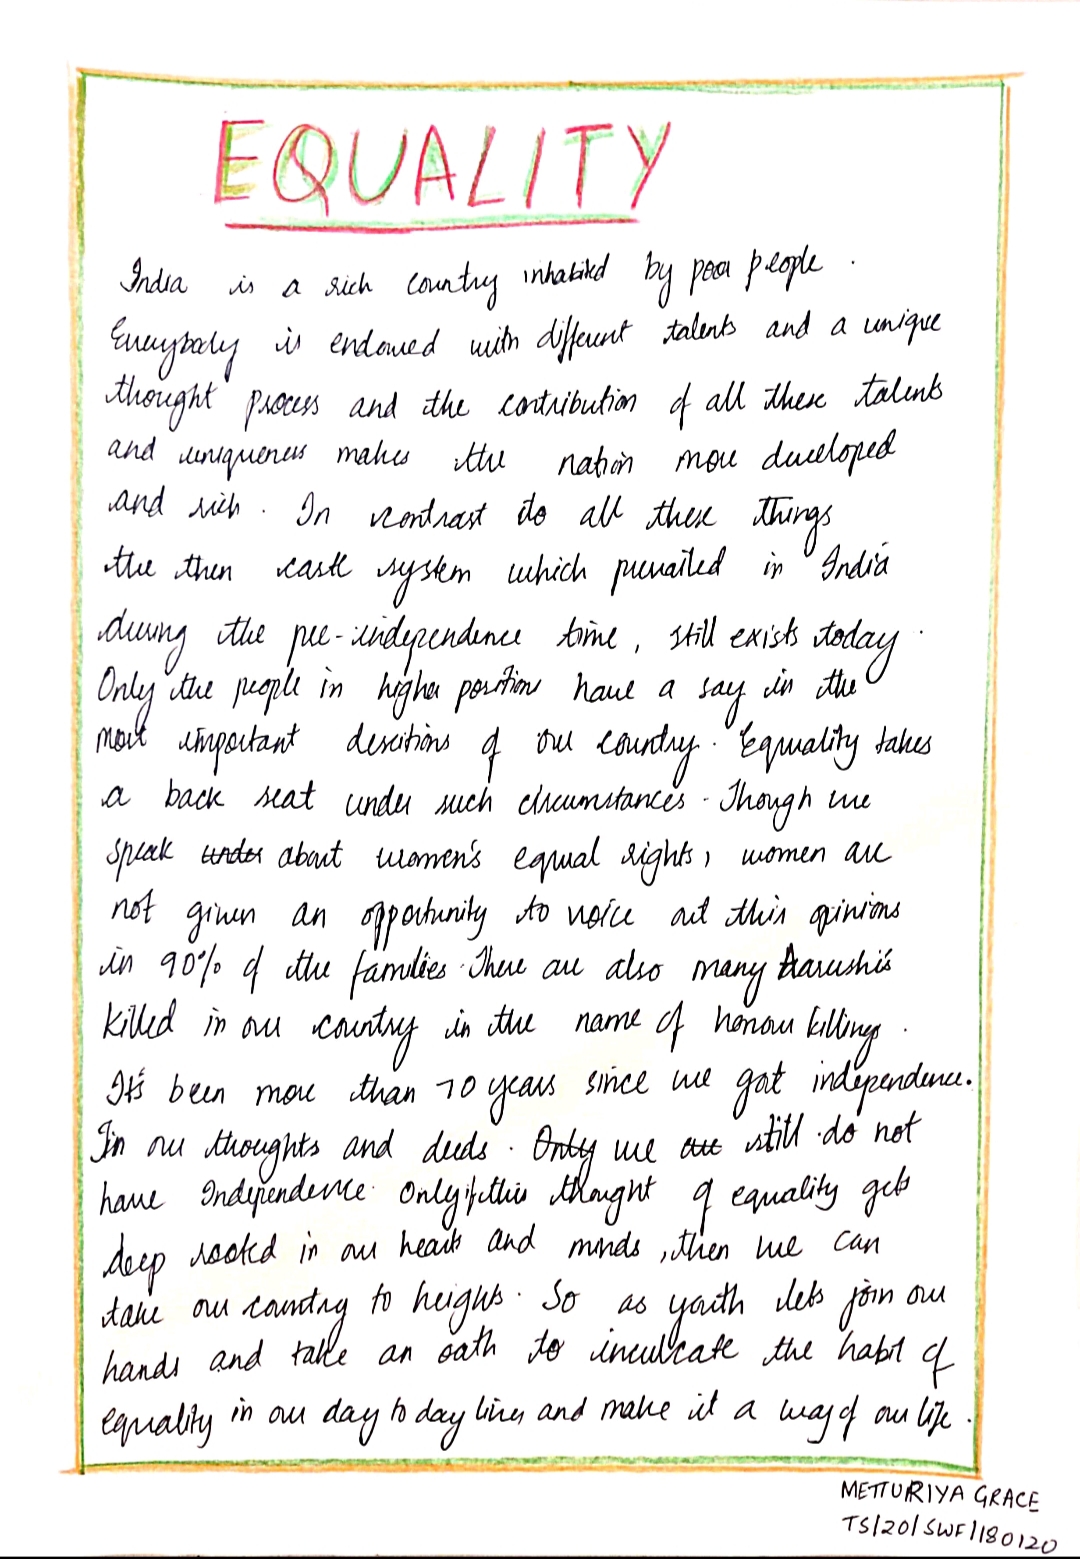 EQUALITY
India is a rich country inhabited by poor people .
Everybody is endowed with different talents and a unique
thought process and the contribution of all these talents
and uniqueness makes the nation more developed
and rich . In contrast to all these things
the then caste system which prevailed in India
during the pre-independence time , still exists today .
Only the people in higher position have a say in the
most important descitions of our country . Equality takes
a back seat under such circumstances . Though we
speak under about women's equal rights , women are
not given an opportunity to voice out this opinions
in 90% of the families . There are also many Aarushi's
killed in our country in the name of honour killings .
It's been more than 70 years since we got independence .
In our thoughts and deeds . Only we are still do not
have Independence . Only if this thought of equality gets
deep rooted in our hearts and minds , then we can
take our country to heights . So as youth lets join our
hands and take an oath to inculcate the habit of
equality in our day to day lives and make it a way of our life .
METTURIYA GRACE
TS/20/SWF/180120